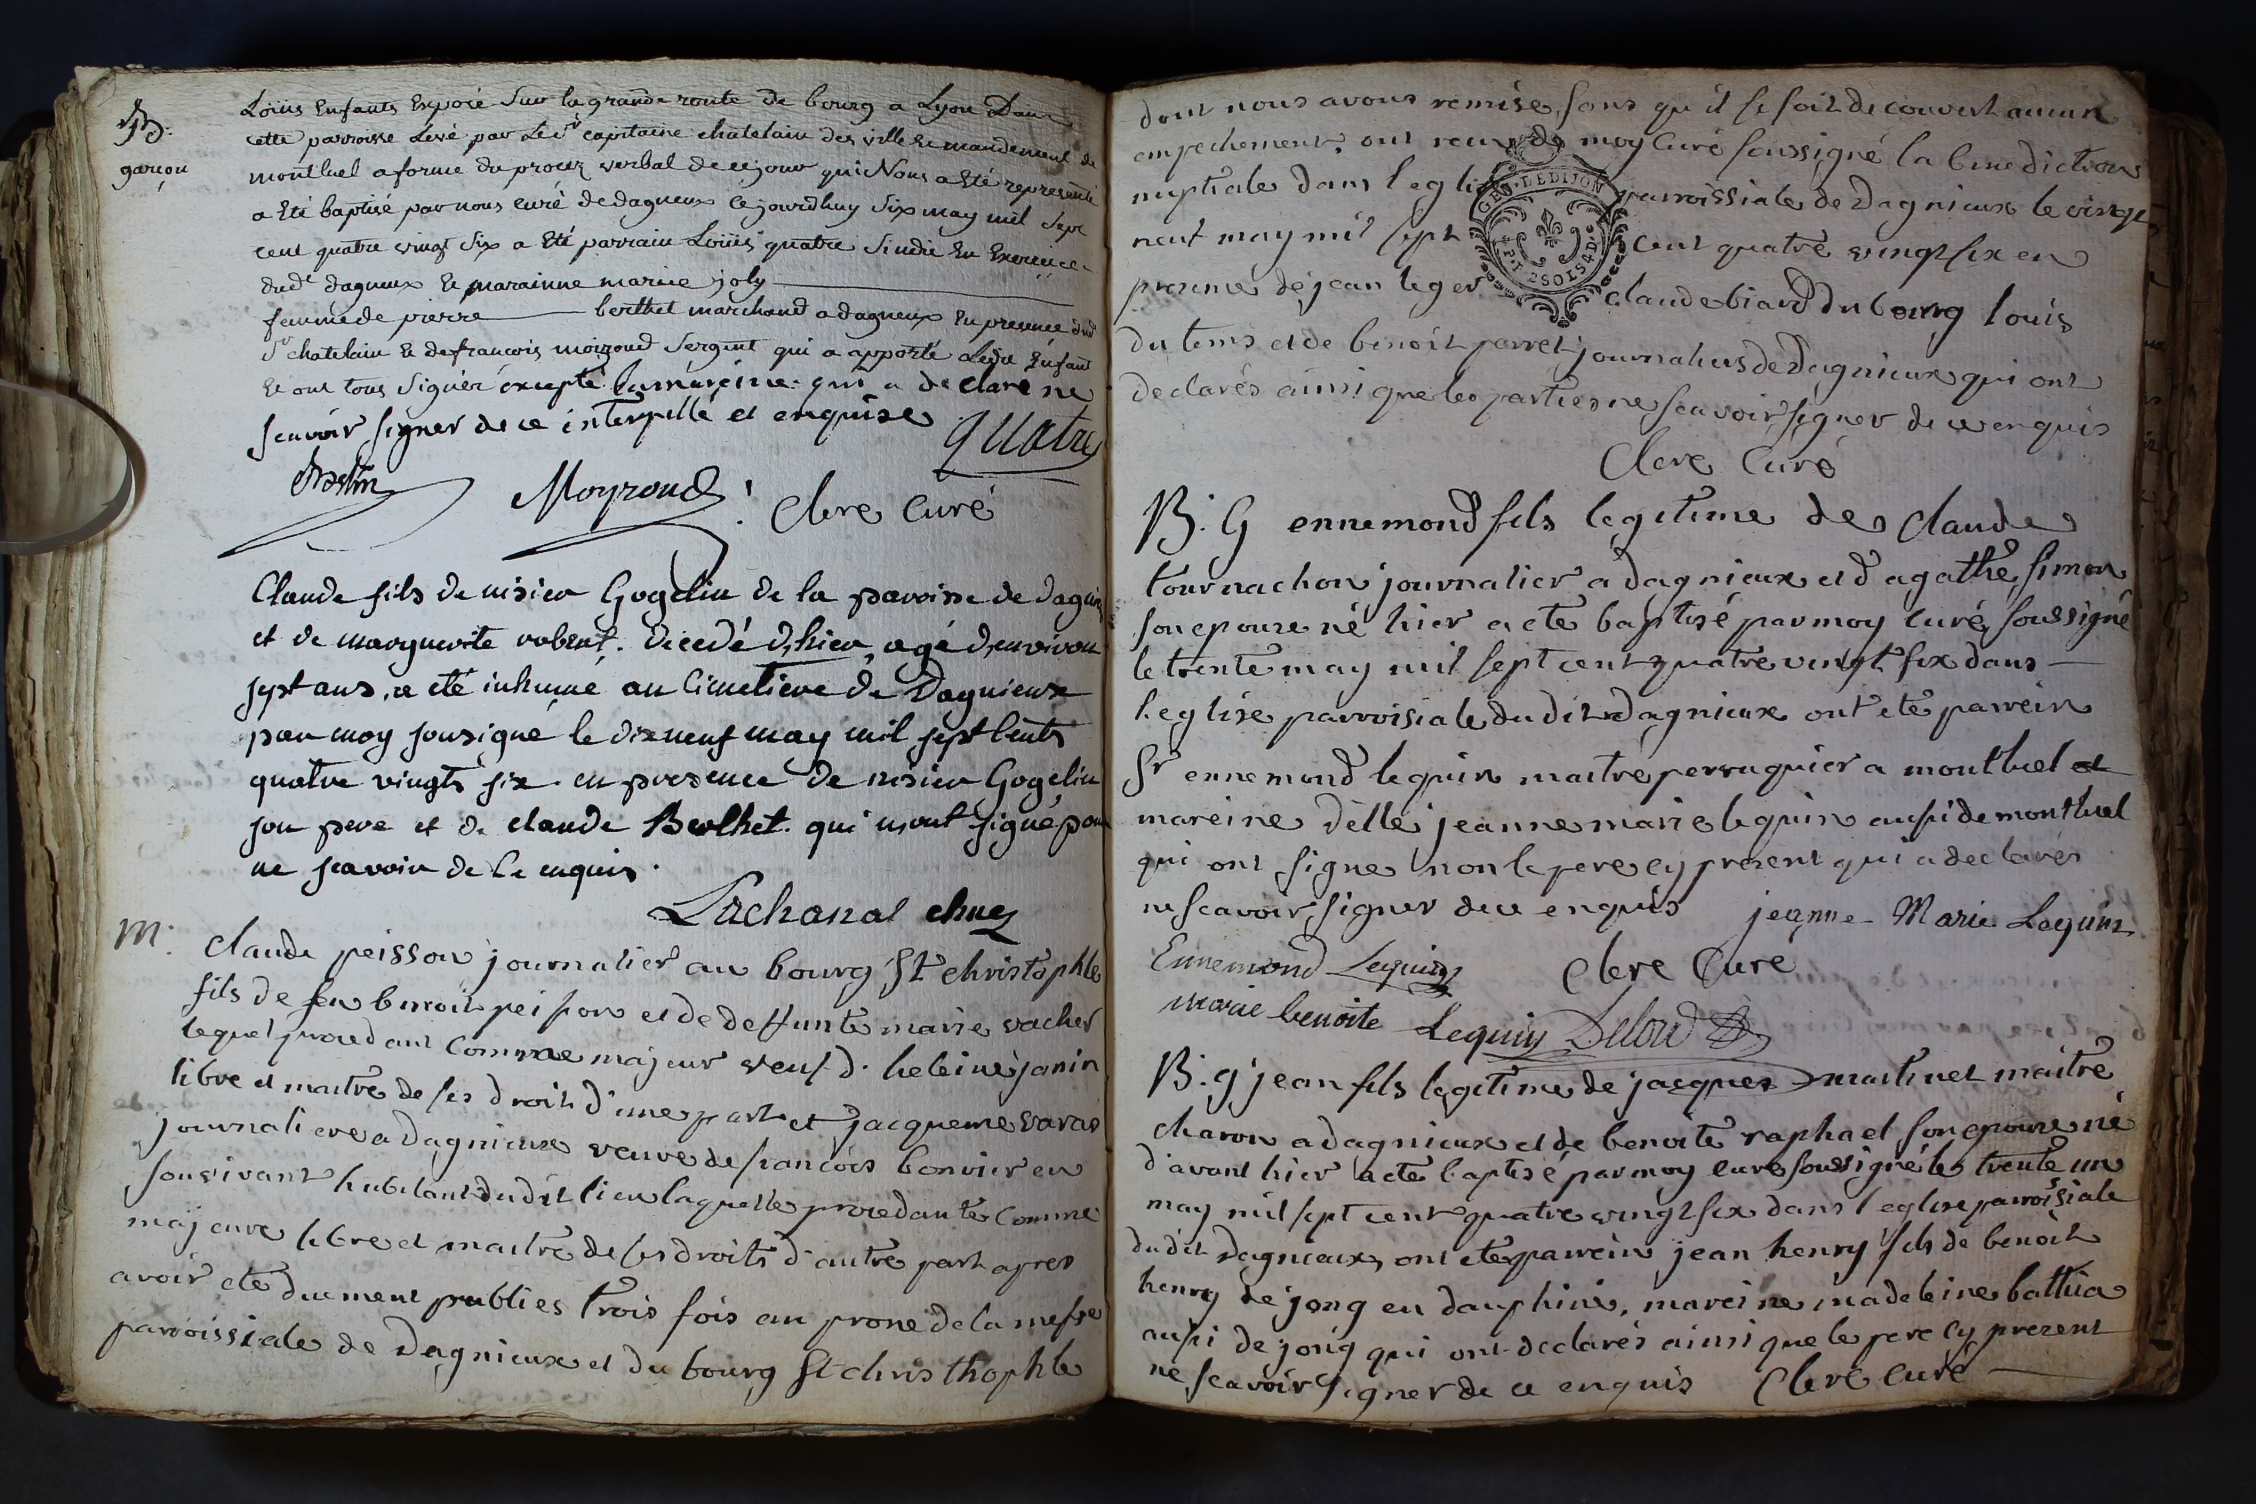 B.
garçon
Loüis Enfants Exposé Sur la grande route de bourg a Lyon Dans
cette parroisse Levé par Le Sr capitaine chatelain des ville Et mandement de
montluel a forme du procez verbal de ce jour qui Nous a Eté representé
a Eté baptisé par nous curé de dagneux ce jourdhuy Six may mil Sept
cent quatre vingt Six a Eté parrain Loüis quatre Sindic En Exercice
dud dagneux Et marainne marie joly
femme de pierre berthet marchand a dagneux En presence dud
Sr chatelain Et de francois moizoud Sergent qui a apporté Led Enfant
Et ont tous Signér éxcepté la mareine qui a declaré ne
scavoir signer de ce interpellé et enquise quatre
Moyroud Clere Curé
Claude fils de nisier Gogelin de la paroisse de Dagnieu
et de marguerite robert. decedé d,hier, agé d,environ
sept ans, a eté inhumé au Cimetiere de Dagnieux
par moy sousigné le dixneuf may mil sept Cents
quatre vingts six en presence de nisier Gogelin
son pere et de claude Berthet qui n,ont signé pour
ne scavoir de Ce enquis.
Lachanal
M.
Claude peisson journalier au bourg St christophle
fils de feu benoit peisson et de deffunte marie vacher
lequel procedant Comme majeur veuf d. heleine janin
libre et maitre de ses droits d'une part et jacqueme varas
journaliere a Dagnieux veuve de francois bonvier en
son vivant habitant dudit lieu laquelle procedante Comme
majeure libre et maitre de ses droits d'autre part apres
avoir eté duement publies trois fois au prone de la messe
parroissiale de Dagnieux et du bourg St christhophle
dont nous avons remise, sans qu'il se soit decouvert aucun
empechement, ont receu de moy Curé soussigné la benediction
nuptiale dans l'eglise parroissiale de Dagnieux le vingt
neuf may mil sept cent quatre vingt six en
presence de jean leger claude biard du bourg louis
du tems et de benoit parret journaliers de Dagnieux qui ont
declarés ainsi que les parties ne scavoir signer de ce enquis
GEN. DE DIJON
P.P. 2 SOLS 4 D.
Clere Curé
B. G ennemond fils legitime de claude
tournachon journalier a dagnieux et d'agathe simon
son epouse né hier a eté baptisé par moy curé soussigné
le trente may mil sept cent quatre vingt six dans
l'eglise parroisiale dudit dagnieux ont eté parrein
Sr ennemond lequin maitre perruquier a montluel et
mareine delle jeanne marie lequin aussi de montluel
qui ont signe non le pere cy present qui a declarés
ne scavoir signer de ce enquis jeanne Marie Lequin
Ennemond Lequin Clere Curé
marie benoite Lequin
B. g jean fils legitime de jacques martinet maitre
charon a dagnieux et de benoite raphael son epouse né
d'avant hier a eté baptisé par moy curé soussigné le trente un
may mil sept cent quatre vingt six dans l'eglise parroisiale
dudit Dagnieux, ont eté parrein jean henry fils de benoit
henry de jong en dauphiné, mareine madeleine
aussi de jong qui ont declarés ainsi que le pere cy present
ne scavoir signer de ce enquis Clere Curé